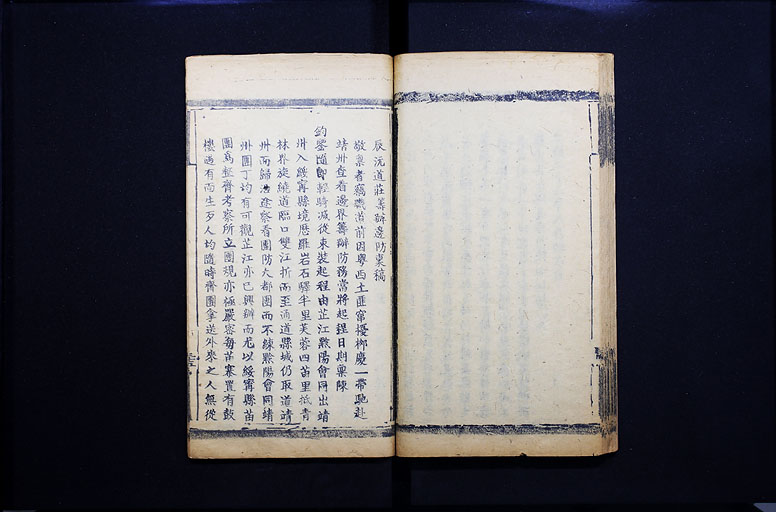 辰沅道莊籌辦邊防稟稿
敬稟者竊職道前因粵西土匪竄擾柳慶一帶馳赴
靖州查看邊界籌辦防務當將起程日期稟陳
鈞鑒隨即輕騎減從束裝起程由芷江黔陽會同出靖
州入綏寧縣境歷羅岩石驛半里芙蓉四苗里抵青
林界旋繞道臨口雙江折而至通道縣城仍取道靖
州而歸沿途察看團防大都團而不練黔陽會同靖
州團丁均有可觀芷江亦已興辦而尤以綏寧縣苗
團爲整齊考察所立團規亦極嚴密每苗寨置有鼓
樓遇有面生歹人均隨時齊團拿送外來之人無從